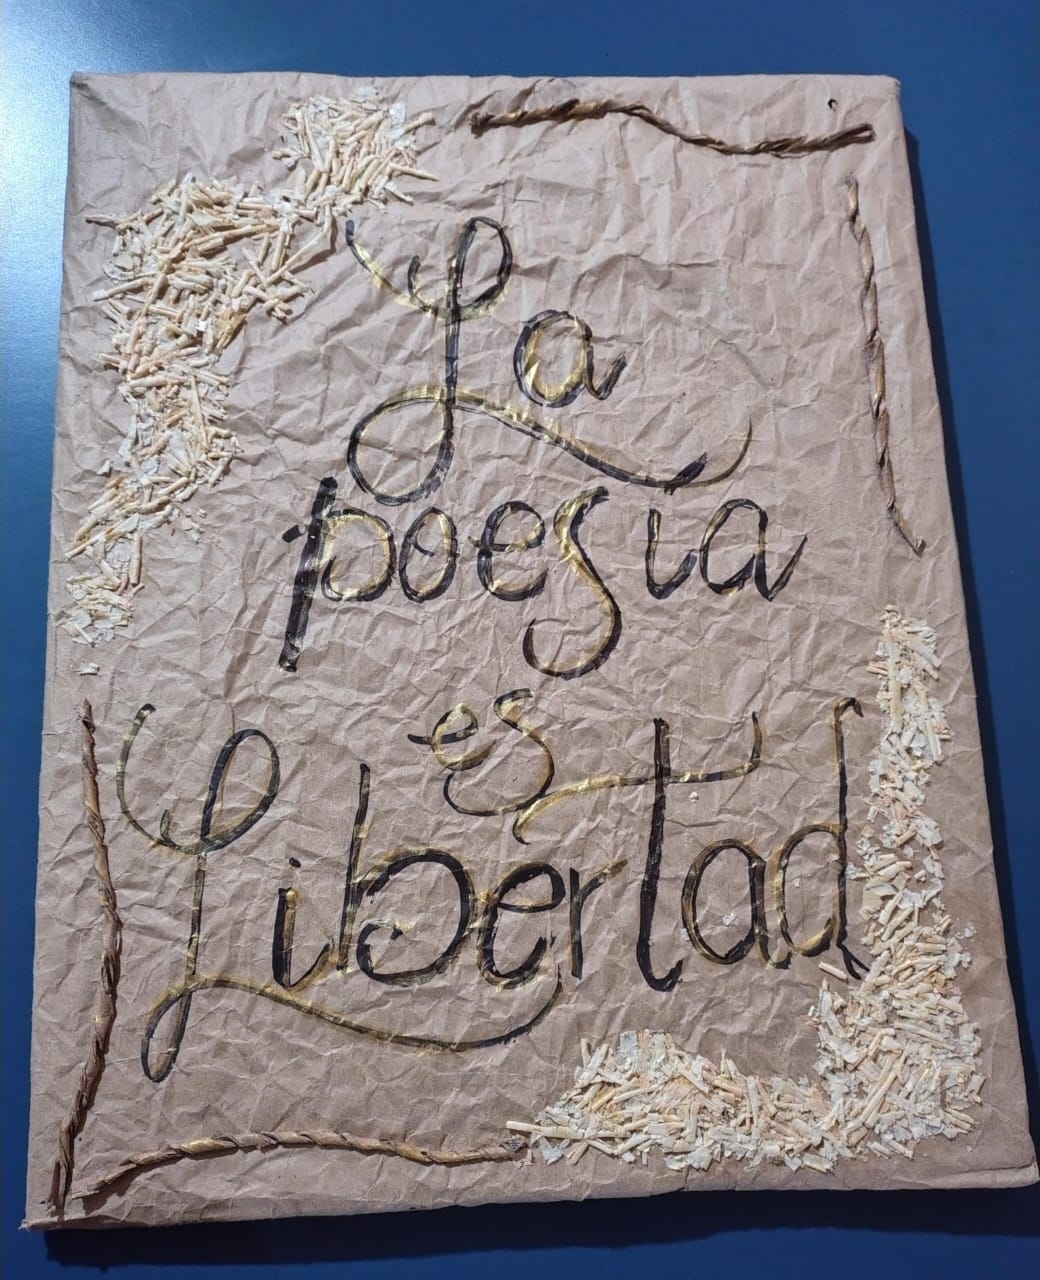 La
poesia
es
Libertad